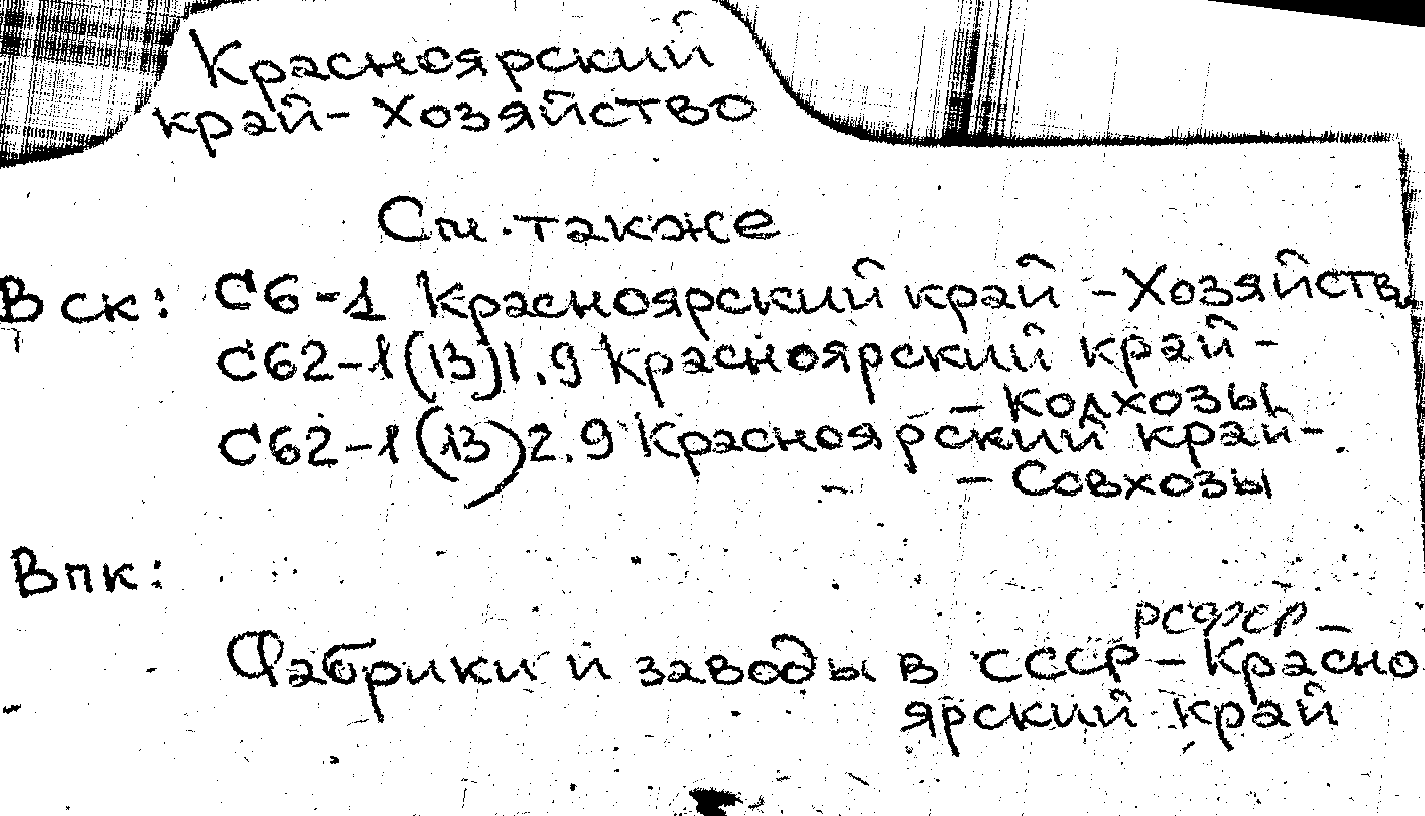 Красноярский
край - Хозяйство
См. также
В ск: С6-1 Красноярский край - Хозяйств
С62-1(13)1.9 Красноярский край -
- Колхозы
С62-1(13)2.9 Красноярский край -
- Совхозы
В пк:
РСФСР -
Фабрики и заводы в СССР - Красно
ярский край